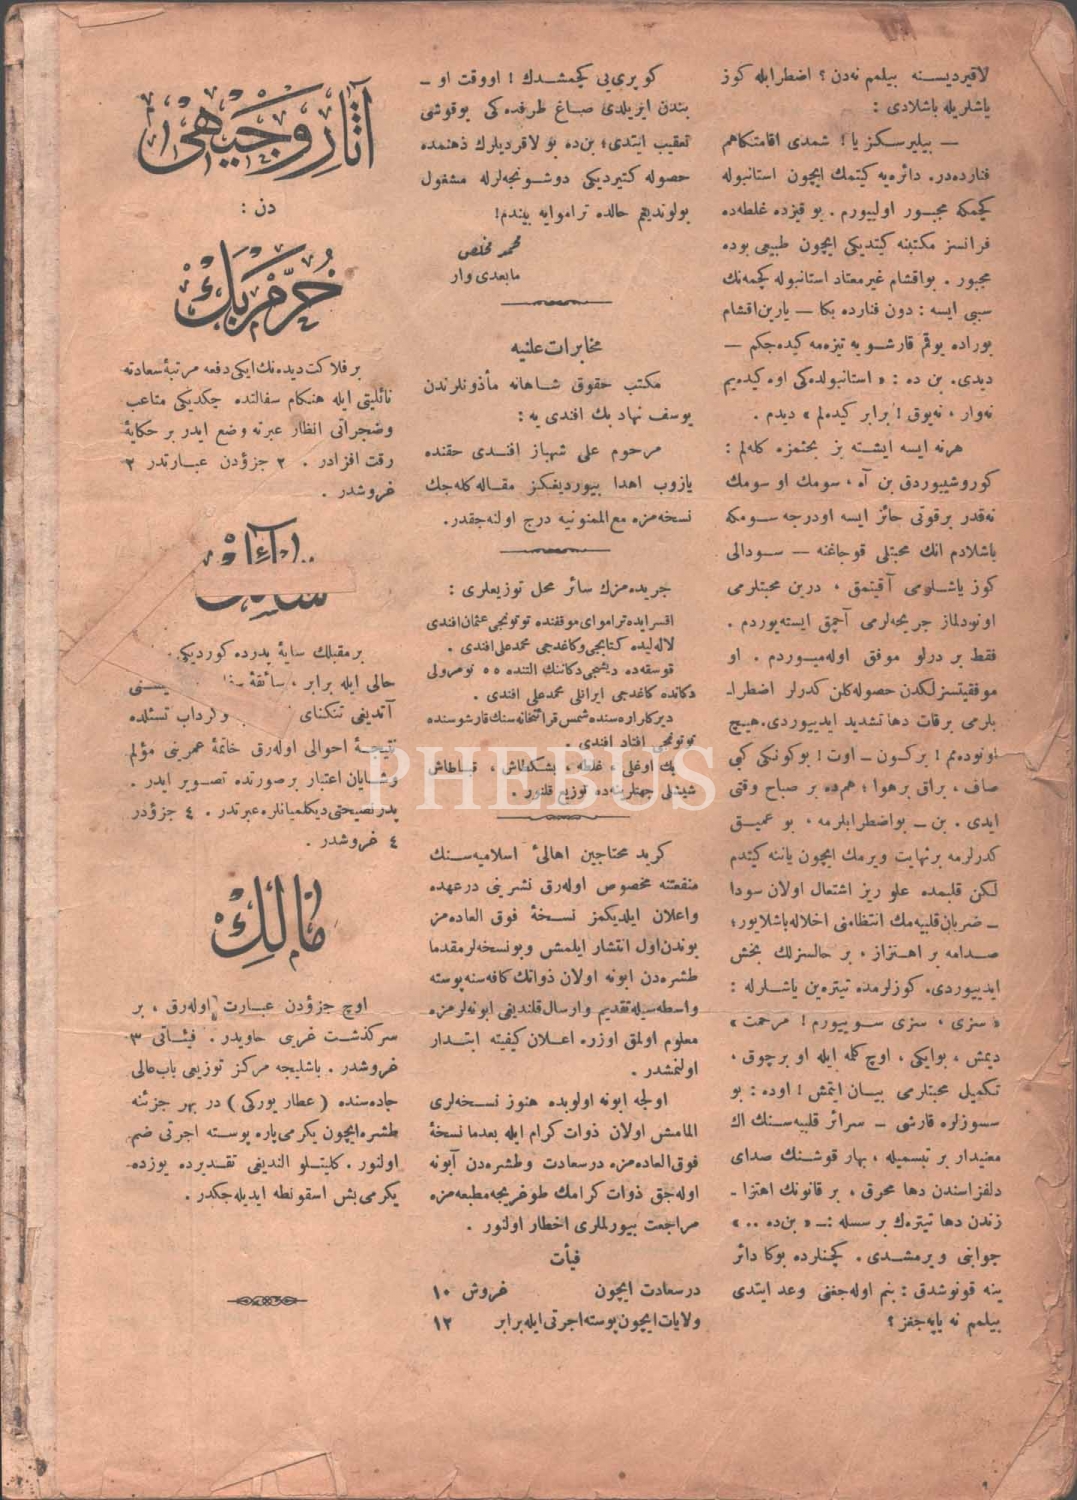 لاقيرديسنه بيلمم نه‌دن ؟ اضطرابله كوز
ياشلريله باشلادى :
— بيليرسكز يا ! شمدى اقامتكاهم
فنارده‌در. دائره‌يه كيتمك ايچون استانبوله
كچمكه مجبور اوليورم . بو قيزده غلطه‌ده
فرانسز مكتبنه كيتديكى ايچون طبيعى بوده
مجبور . بواقشام غيرمعتاد استانبوله كچمه‌نك
سببى ايسه : دون فنارده بكا — يارين‌اقشام
بوراده يوقم قارشويه تيزه‌مه كيده‌جكم —
ديدى. بن ده : « استانبولده‌كى اوه كيده‌يم
نه‌وار ، نه‌يوق ! برابر كيده‌لم » ديدم .
هرنه ايسه ايشته بز بحثمزه كله‌لم :
كوروشييوردق بن آه ، سومك او سومك
نه‌قدر برقوتى حائز ايسه اودرجه سومكه
باشلادم انك محبتلى قوجاغنه — سودالى
كوز ياشلرمى آقيتمق ، درين محبتلرمى
اونودلماز جريحه‌لرمى آچمق ايسته‌يوردم .
فقط بر درلو موفق اوله‌ميوردم . او
موفقيتسزلكدن حصوله‌كلن كدرلر اضطرا‌ـ
بلرمى برقات دها تشديد ايدييوردى. هيچ
اونوده‌مم ! بركون ـ اوت ! بوكونكى كبى
صاف ، براق برهوا ؛ هم‌ده بر صباح وقتى
ايدى . بن ـ بواضطرابلرمه ، بو عميق
كدرلرمه برنهايت ويرمك ايچون ياننه كيتدم
لكن قلبمده علو ريز اشتعال اولان سودا
ـ ضربان‌قلبيه‌مك انتظامنى اخلاله‌باشلايور؛
صدامه بر اهتزاز ، بر حالسزلك بخش
ايدييوردى. كوزلرمده تيتره‌ين ياشلرله :
« سزى ، سزى سوييورم ! مرحمت »
ديمش ، بوايكى ، اوچ كله ايله او برچوق ،
تكميل محبتلرمى بيان ايتمش ! اوده : بو
سوزلره قارشى ـ سرائر قلبيه‌سنك اك
معنيدار بر تبسميله ، بهار قوشنك صداى
دلفزاسندن دها محرق ، بر قانونك اهتزا ـ
زندن دها تيتره‌ك بر سسله :ـ « بن‌ده .. »
جوابنى ويرمشدى . كچنلرده بوكا دائر
ينه قونوشدق : بنم اوله‌جغنى وعد ايتدى
بيلمم نه ياپه‌جغز ؟
كوپرى‌يى كچمشدك ! اووقت او ـ
بندن ايريلدى صاغ طرفده‌كى يوقوشى
تعقيب ايتدى؛ بن‌ده بو لاقرديلرك ذهنمده
حصوله كتيرديكى دوشونجه‌لرله مشغول
بولونديغم حالده تراموايه بيندم!
محمد مخلص
مابعدى وار
مخابرات علنيه
مكتب حقوق شاهانه مأذونلرندن
يوسف نهاد بك افندى يه :
مرحوم على شهباز افندى حقنده
يازوب اهدا بيورديغكز مقاله كله‌جك
نسخه‌مزه مع‌الممنونيه درج اولنه‌جقدر.
جريده‌مزك سائر محل توزيعلرى :
اقسرايده تراموا‌ى موقفنده توتونجى عثمان افندى
لاله‌ليده كتابجى وكاغدجى محمد على افندى .
قوسقه‌ده ديشجى دكاننك التنده ٥٥ نومرولى
دكانده كاغدجى ايرانلى محمد على افندى .
ديركلرآره‌سنده شمس قرائتخانه‌سنك قارشوسنده
توتونجى افندى .
بك اوغلى ، غلطه ، بشكطاش ، قباطاش
شيشلى جهتلرينه‌ده توزيع قلنور .
كريد محتاجين اهالئ اسلاميه‌سنك
منفعتنه مخصوص اوله‌رق نشرينى درعهده
واعلان ايلديكمز نسخهٔ فوق العاده‌مز
بوندن‌اول انتشار ايلمش وبونسخه‌لرمقدما
طشره‌دن ابونه اولان ذواتك كافه‌سنه‌پوسته
واسطه‌سيله‌تقديم وارسال‌قلنديغى ابونه‌لرمزه
معلوم اولمق اوزره اعلان كيفيته ابتدار
اولنمشدر .
اولجه ابونه اولوبده هنوز نسخه‌لرى
المامش اولان ذوات كرام ايله بعدما نسخهٔ
فوق‌العاده‌مزه درسعادت وطشره‌دن آبونه
اوله‌جق ذوات كرامك طوغريجه‌مطبعه‌مزه
مراجعت بيورلملرى اخطار اولنور .
فيأت
درسعادت ايچون غروش ١٠
ولايات ايچون پوسته اجرتى ايله برابر ١٢
آثار وجيهى
دن :
خرّم بك
بر فلاكت ديده‌نك ايكى دفعه مرتبهٔ سعادته
نائليتى ايله هنكام سفالتده چكديكى متاعب
وضجراتى انظار عبرته وضع ايدر بر حكايهٔ
رقت افزادر . ٢ جزؤدن عبارتدر ٢
غروشدر .
بر مقبلك سايهٔ پدرده كورديكى .
حالى ايله برابر ، سائقهٔ
آتديغى تنكناى وكرداب تسئلده
نتيجهٔ احوالى اوله‌رق خاتمهٔ عمرينى مؤلم
وشايان اعتبار بر صورتده تصوير ايدر .
پدر نصيحتى ديكلميانلره عبرتدر . ٤ جزؤدر
٤ غروشدر .
مالك
اوچ جزؤدن عبارت اوله‌رق ، بر
سركذشت غريبى حاويدر . فيئاتى ٣
غروشدر . باشليجه مركز توزيعى باب‌عالى
جاده‌سنده ( عطار يوركى ) در بهر جزئنه
طشره ايچون يكرمى پاره پوسته اجرتى ضم
اولنور . كليتلو الديغى تقديرده يوزده
يكرمى بش اسقونطه ايديله‌جكدر .
PHEBUS